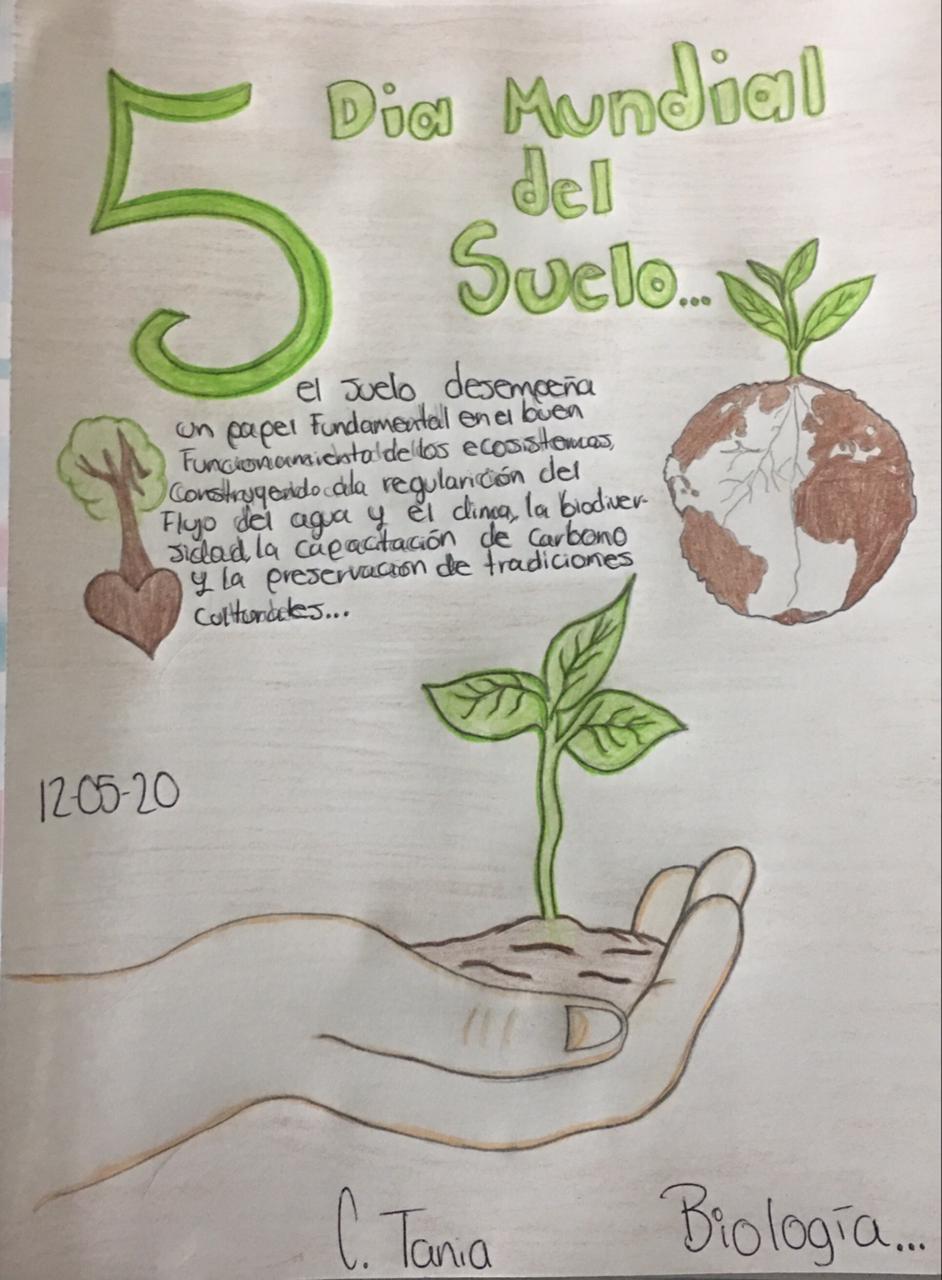 5
Dia Mundial
del
Suelo...
el suelo desempeña
un papel Fundamental en el buen
Funcionamiento de los ecosistemas,
Construyendo a la regularición del
Flujo del agua y el clima, la biodiver-
sidad, la capacitación de Carbono
y la preservación de tradiciones
Culturales...
12-05-20
C. Tania
Biología...